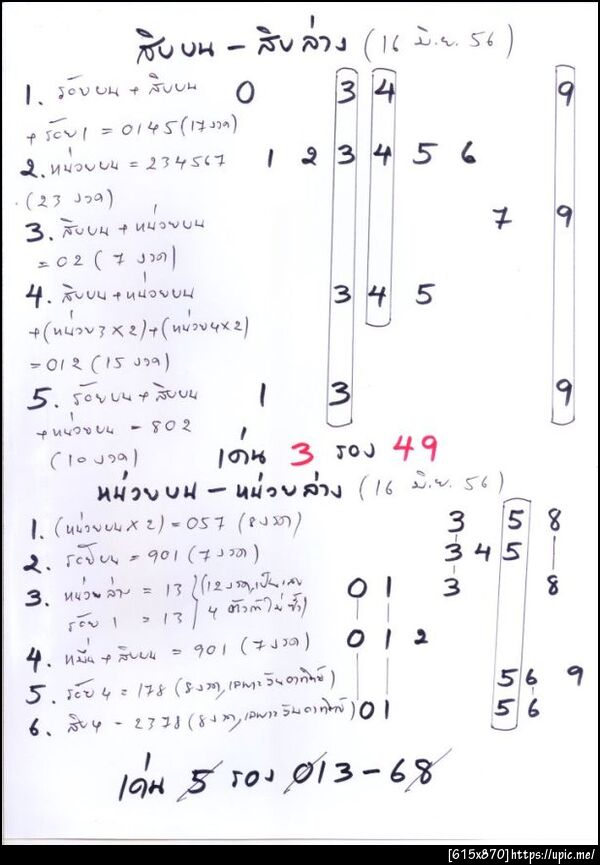 สิบบน - สิบล่าง (16 มิ.ย. 56)
1. ร้อยบน + สิบบน 0 3 4 9
+ ร้อย 1 = 0145 (17 งวด)
2. หน่วยบน = 234567 1 2 3 4 5 6
(23 งวด)
3. สิบบน + หน่วยบน 7 9
= 02 (7 งวด)
4. สิบบน + หน่วยบน 3 4 5
+ (หน่วย 3 x 2) + (หน่วย 4 x 2)
= 012 (15 งวด)
5. ร้อยบน + สิบบน 1 3 9
+ หน่วยบน - 802
(10 งวด) เด่น 3 รอง 49
หน่วยบน - หน่วยล่าง (16 มิ.ย. 56)
1. (หน่วยบน x 2) = 057 (8 งวด) 3 5 8
2. ร้อยบน = 901 (7 งวด) 3 4 5
3. หน่วยล่าง = 13 (12 งวด, เป็นเลข 0 1 3 8
ร้อย 1 = 13 4 ตัวที่ไม่ซ้ำ)
4. หมื่น + สิบบน = 901 (7 งวด) 0 1 2
5. ร้อย 4 = 178 (8 งวด, เฉพาะวันอาทิตย์) 5 6 9
6. สิบ 4 - 2378 (8 งวด, เฉพาะวันอาทิตย์) 0 1 5 6
เด่น 5 รอง 013 - 68
[615x870]https://upic.me/